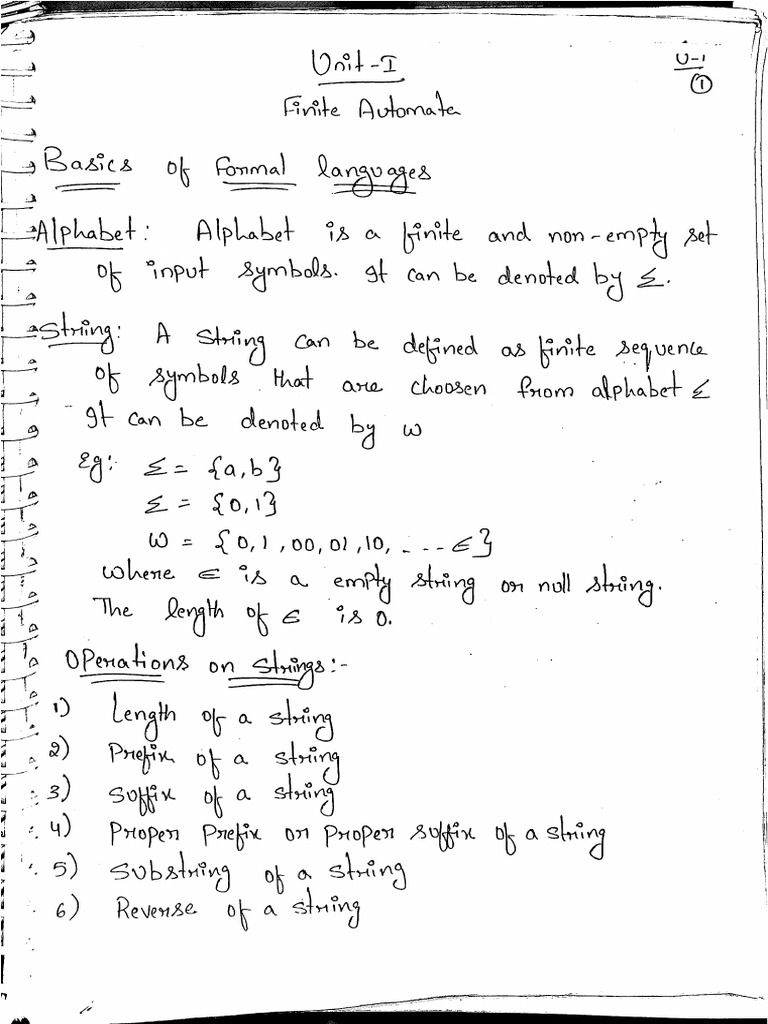 Unit-I
U-1
1
Finite Automata
Basics of Formal languages
Alphabet: Alphabet is a finite and non-empty set
of input symbols. It can be denoted by Σ.
String: A string can be defined as finite sequence
of symbols that are choosen from alphabet Σ
It can be denoted by w
Eg: Σ = {a,b}
Σ = {0,1}
w = {0,1,00,01,10,....ϵ}
where ϵ is a empty string or null string.
The length of ϵ is 0.
Operations on strings:-
1) Length of a string
2) Prefix of a string
3) Suffix of a string
4) Proper Prefix or Proper suffix of a string
5) Substring of a string
6) Reverse of a string